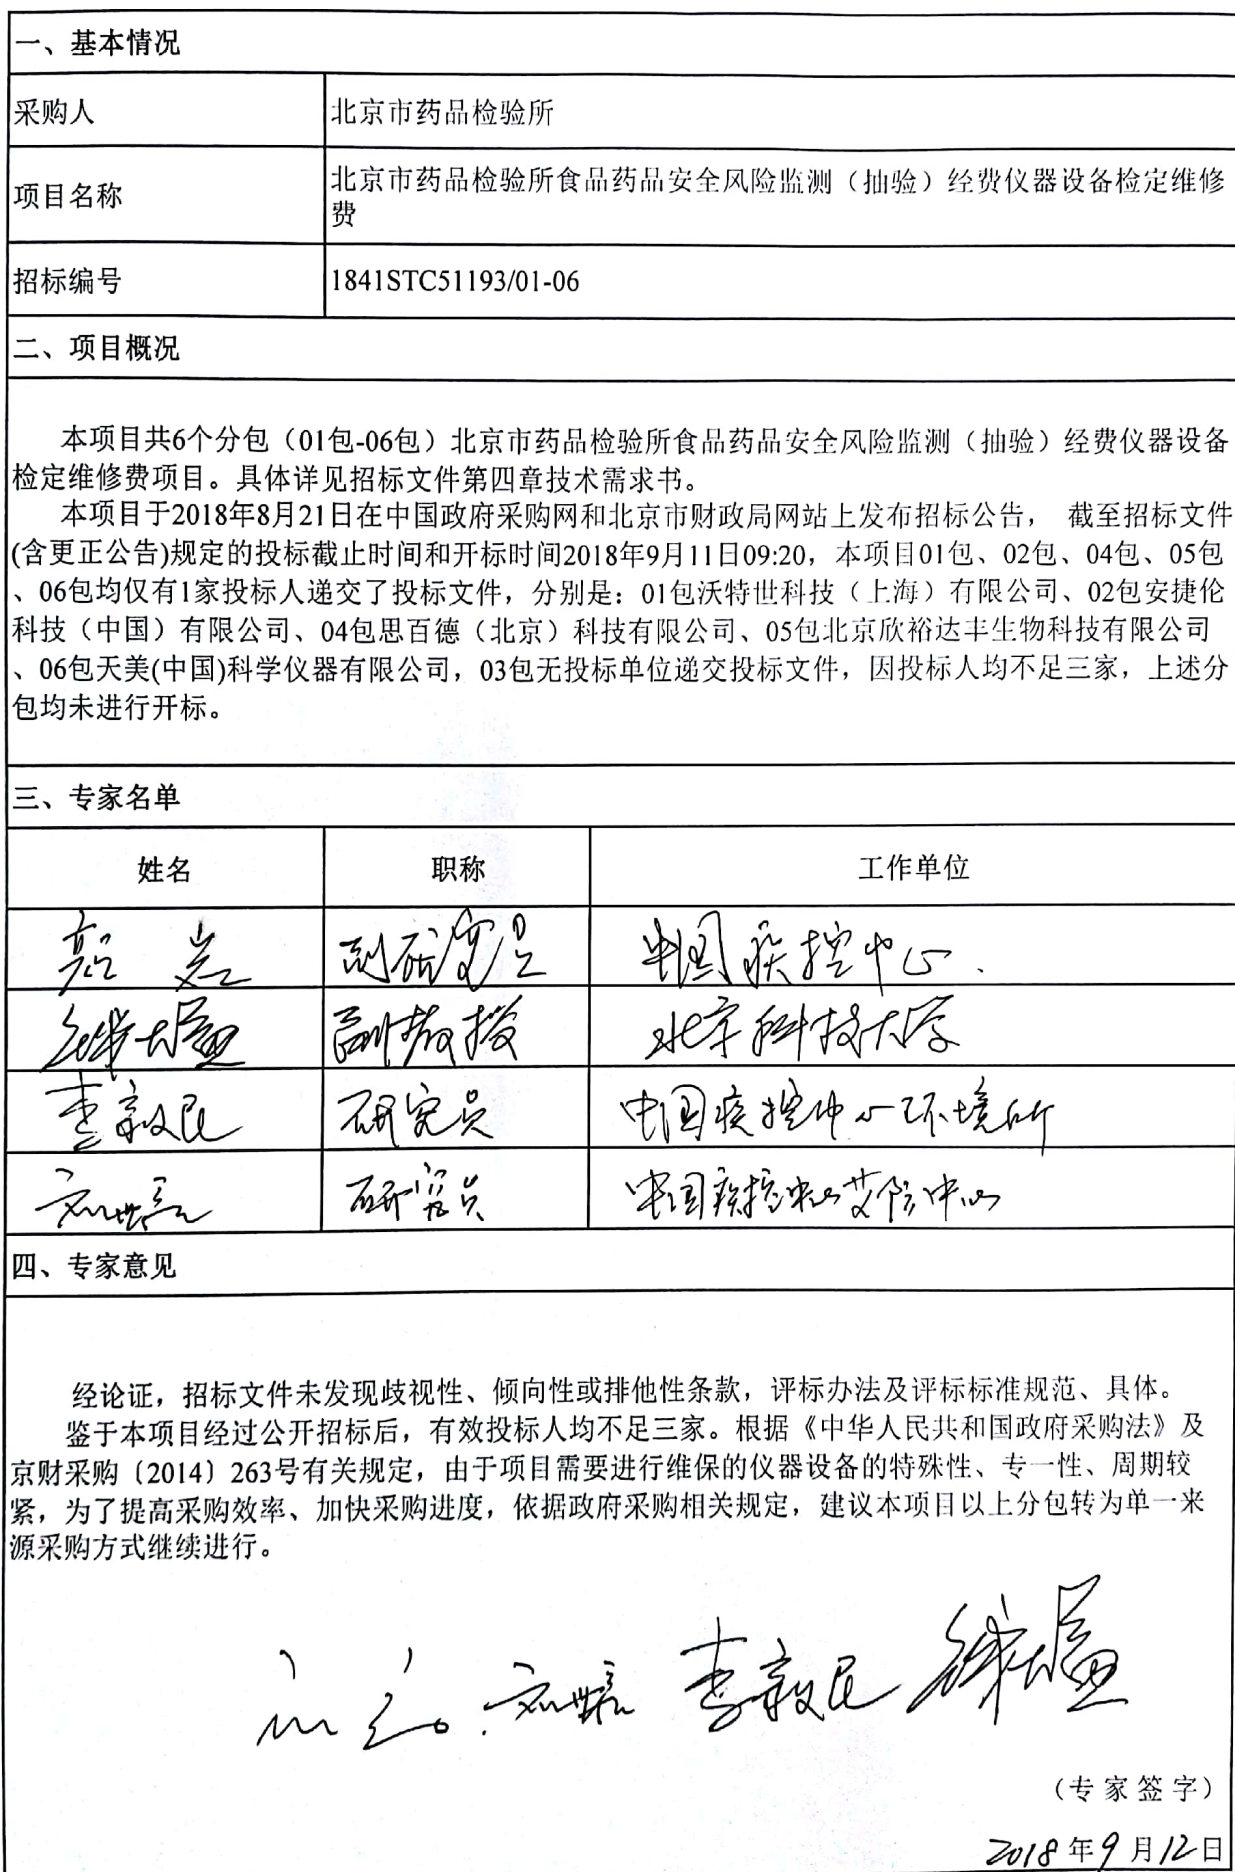 一、基本情况
采购人 北京市药品检验所
项目名称 北京市药品检验所食品药品安全风险监测（抽验）经费仪器设备检定维修
费
招标编号 1841STC51193/01-06
二、项目概况
本项目共6个分包（01包-06包）北京市药品检验所食品药品安全风险监测（抽验）经费仪器设备
检定维修费项目。具体详见招标文件第四章技术需求书。
本项目于2018年8月21日在中国政府采购网和北京市财政局网站上发布招标公告， 截至招标文件
(含更正公告)规定的投标截止时间和开标时间2018年9月11日09:20，本项目01包、02包、04包、05包
、06包均仅有1家投标人递交了投标文件，分别是：01包沃特世科技（上海）有限公司、02包安捷伦
科技（中国）有限公司、04包思百德（北京）科技有限公司、05包北京欣裕达丰生物科技有限公司
、06包天美(中国)科学仪器有限公司，03包无投标单位递交投标文件，因投标人均不足三家，上述分
包均未进行开标。
三、专家名单
姓名 职称 工作单位
副研究员 中国疾控中心.
副教授 北京科技大学
李毅民 研究员 中国疾控中心环境所
研究员 中国疾控中心艾防中心
四、专家意见
经论证，招标文件未发现歧视性、倾向性或排他性条款，评标办法及评标标准规范、具体。
鉴于本项目经过公开招标后，有效投标人均不足三家。根据《中华人民共和国政府采购法》及
京财采购〔2014〕263号有关规定，由于项目需要进行维保的仪器设备的特殊性、专一性、周期较
紧，为了提高采购效率、加快采购进度，依据政府采购相关规定，建议本项目以上分包转为单一来
源采购方式继续进行。
李毅民
（专家签字）
2018年9月12日